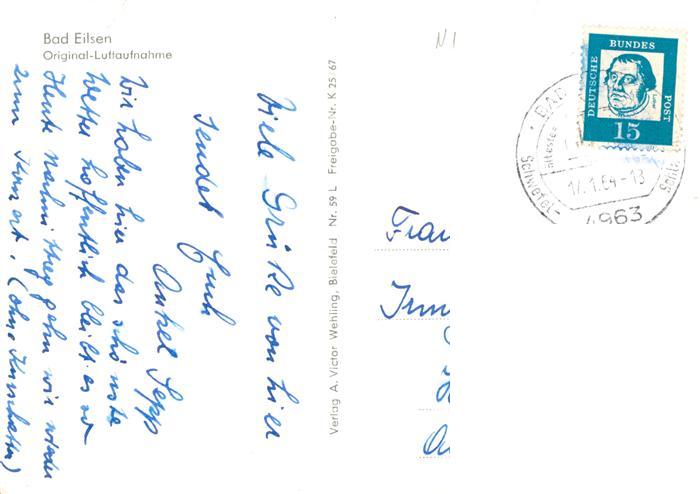 Bad Eilsen
Original-Luftaufnahme
Viele Grüße von hier
sendet Euch
Onkel Sepp
Wir haben hier das schönste
Wetter hoffentlich bleibt es so
Heute Nachmittag gehn wir wieder
zum Konzert. (ohne Kurschatten)
Verlag A. Victor Wehling, Bielefeld Nr. 59 L Freigabe-Nr. K 25/67
DEUTSCHE
BUNDES
POST
15
BAD
Schwefel-
17.1.64-13
4963
Frau